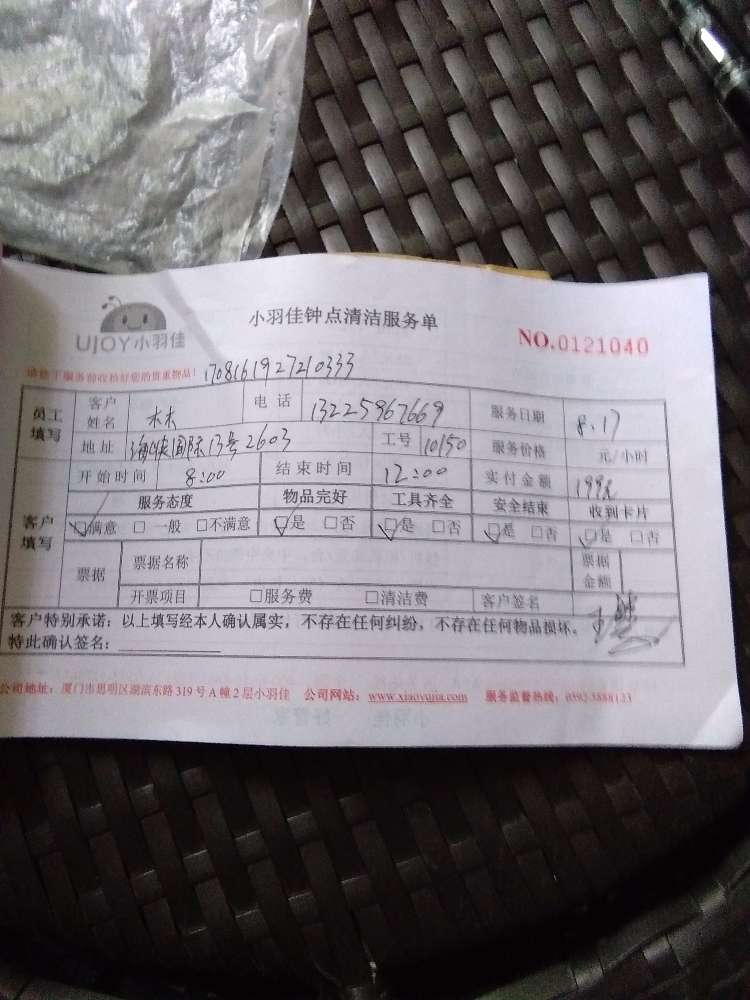 UJOY小羽佳
小羽佳钟点清洁服务单
NO.0121040
请您于服务前收拾好您的贵重物品! 1708161927210333
员工填写 客户姓名 木木 电话 13225967669 服务日期 8.17
地址 海峡国际13号2603 工号 10150 服务价格 元/小时
开始时间 8:00 结束时间 12:00 实付金额 199元
客户填写 服务态度 物品完好 工具齐全 安全结束 收到卡片
☑满意 □一般 □不满意 ☑是 □否 ☑是 □否 ☑是 □否 ☑是 □否
票据 票据名称 票据金额
开票项目 □服务费 □清洁费 客户签名
客户特别承诺：以上填写经本人确认属实，不存在任何纠纷，不存在任何物品损坏。
特此确认签名：
公司地址：厦门市思明区湖滨东路319号A幢2层小羽佳 公司网站：www.xiaoyujia.com 服务监督热线：0592-5888123